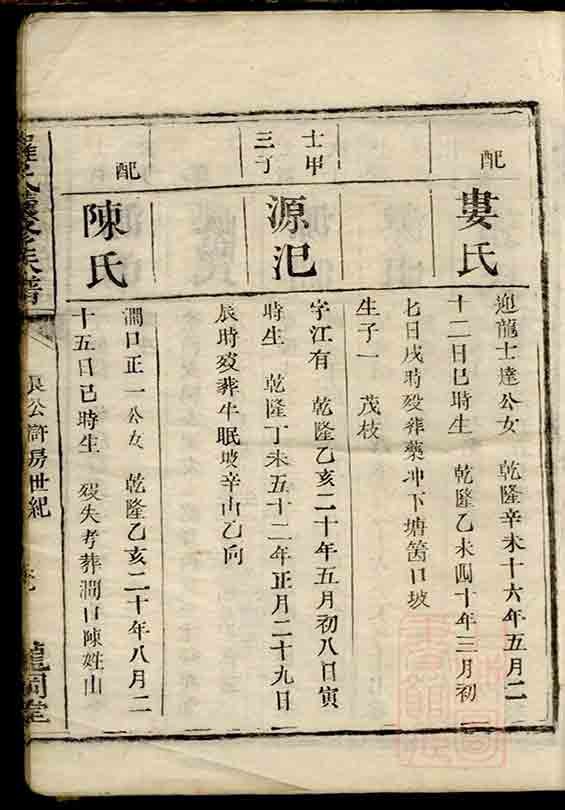 配
婁氏
迎龍士達公女 乾隆辛未十六年五月二
十二日巳時生 乾隆乙未四十年三月初
七日戌時歿葬藥冲下塘窩口坡
生子一 茂枝
士甲
三丁
源汜
字江有 乾隆乙亥二十年五月初八日寅
時生 乾隆丁未五十二年正月二十九日
辰時歿葬牛眠坡辛山乙向
配
陳氏
澗口正一公女 乾隆乙亥二十年八月二
十五日巳時生 歿失考葬澗口陳姓山
族譜
良公滸房世紀